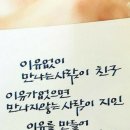 이유없이
만나는사람이 친구
이유가없으면
만나지않는사람이 지인
이유를 만들어